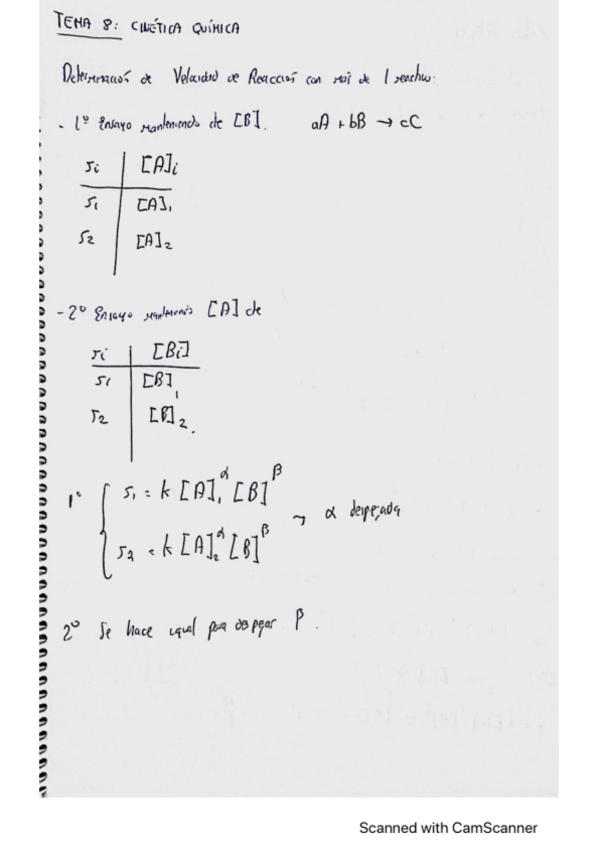 TEMA 8: CINÉTICA QUÍMICA
Determinación de Velocidad de Reacción con más de 1 reactivo:
- 1º Ensayo manteniendo cte [B]. aA + bB → cC
ri | [A]i
r1 | [A]1
r2 | [A]2
- 2º Ensayo manteniendo [A] cte
ri | [Bi]
r1 | [B]1
r2 | [B]2.
1º { r1 = k [A]1^α [B]^β
r2 = k [A]2^α [B]^β → α despejada
2º Se hace igual para despejar β.
Scanned with CamScanner